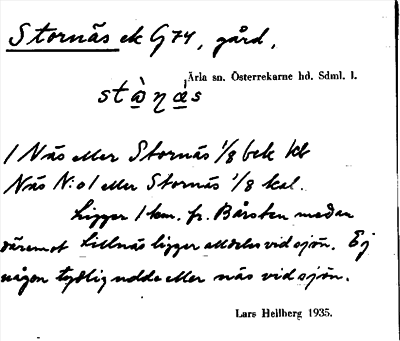 Stornäs ek G74, gård,
Ärla sn. Österrekarne hd. Sdml. l.
1 Näs eller Stornäs 1/8 bek kb
Näs N:o 1 eller Stornäs 1/8 kal.
Ligger 1 km. fr. Bårsten medan
däremot Lillnäs ligger alldeles vid sjön. Ej
någon tydlig udde eller näs vid sjön.
Lars Hellberg 1935.